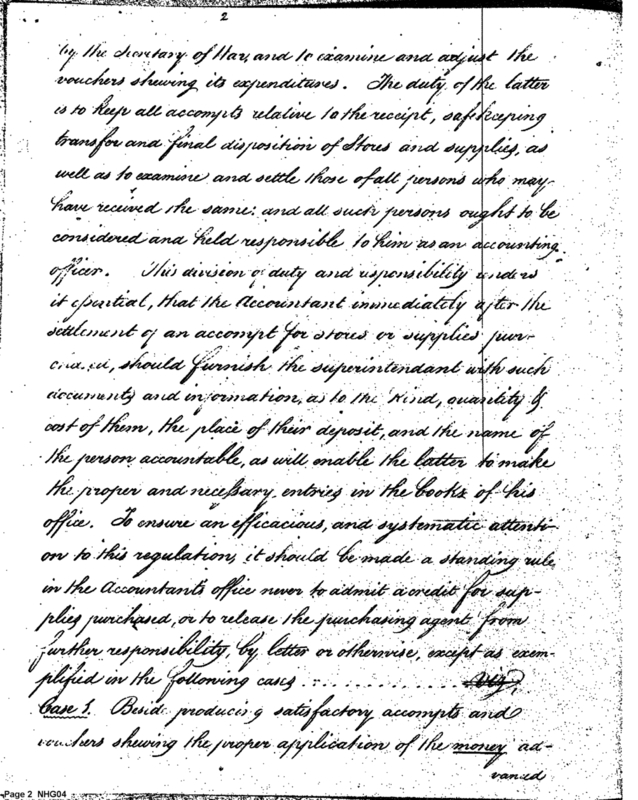 2
by the Secretary of War, and to examine and adjust the
vouchers shewing its expenditures. The duty of the latter
is to keep all accompts relative to the receipt, safekeeping
transfer and final disposition of Stores and supplies, as
well as to examine and settle those of all persons who may
have received the same: and all such persons ought to be
considered and held responsible to him as an accounting
officer. This division of duty and responsibility renders
it essential, that the Accountant immediately after the
settlement of an accompt for stores or supplies pur-
chased, should furnish the superintendant with such
documents and information, as to the kind, quantity &
cost of them, the place of their deposit, and the name of
the person accountable, as will enable the latter to make
the proper and necessary entries in the books of his
office. To ensure an efficacious, and systematic attenti-
on to this regulation, it should be made a standing rule
in the Accountant's office never to admit a credit for sup-
plies purchased, or to release the purchasing agent from
further responsibility, by letter or otherwise, except as exem-
plified in the following cases . . . . . . . . . . . . Viz,
Case 1. Beside producing satisfactory accompts and
vouchers shewing the proper application of the money ad-
vanced
Page 2 NHG04